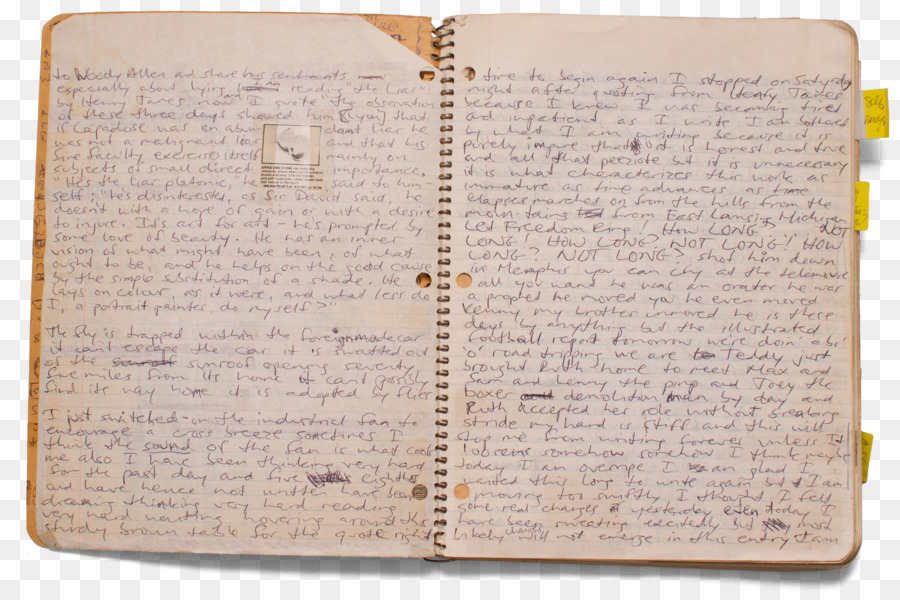 to Woody Allen and share his sentiments
especially about lying reading the "Liar"
by Henry James now and I quote the observation
of these three days showed him [Lyon] that
is Capadose was an abun dant liar he
was not a malignant liar and that his
fine faculty exercised itself mainly on
subjects of small direct importance.
"He's the liar platonic," he said to him
self; "he's disinterested, as Sir David said, he
doesn't with a hope of gain or with a desire
to injure. It's art for art - he's prompted by
some love of beauty. He has an inner
vision of what might have been, of what
ought to be, and he helps on the good cause
by the simple substitution of a shade. He
lays on colour, as it were, and what less do
I, a portrait painter, do myself?"
The fly is trapped within the foreign made car
it can't escape the car it is swatted out
of the sunroof opening seventy
five miles from its home it can't possibly
find its way home it is adopted by flies
I just switched on the industrial fan to
encourage a cross breeze sometimes I
think the sound of the fan is what cools
me also I have been thinking very hard
for the past day and five eighths
and have hence not written have been
dreaming thinking very hard reading
very hard waiting hovering around this
sturdy brown table for the quote right
time to begin again I stopped on Saturday
night after quoting from Henry James
because I knew I was becoming tired
and impatient as I write I am bothered
by what I am writing because it is
purely impure that it is honest and true
and all that but it is unnecessary
it is what characterizes this work as
immature as time advances as time
elapses marches on from the hills from the
mountains from East Lansing Michigan
Let Freedom Ring! How LONG? NOT
LONG! HOW LONG? NOT LONG! HOW
LONG? NOT LONG? shot him down
in Memphis you can cry at the telemovie
all you want he was an orator he was
a prophet he moved you he even moved
Kenny my brother unmoved he is these
days by anything but the illustrated
football report tomorrow we're doin' a bit
'o' road tripping we are Teddy just
brought Ruth home to meet Max and
Sam and Lenny the pimp and Joey the
boxer demolition man by day and
Ruth accepted her role without breaking
stride my hand is stiff and this will
stop me from writing forever unless it
loosens somehow somehow I think maybe
today I am overripe I am glad I
waited this long to write again but I am
moving too swiftly I thought I felt
some real charges yesterday even today I
have been sweating excitedly but most
likely will not emerge in this entry I am